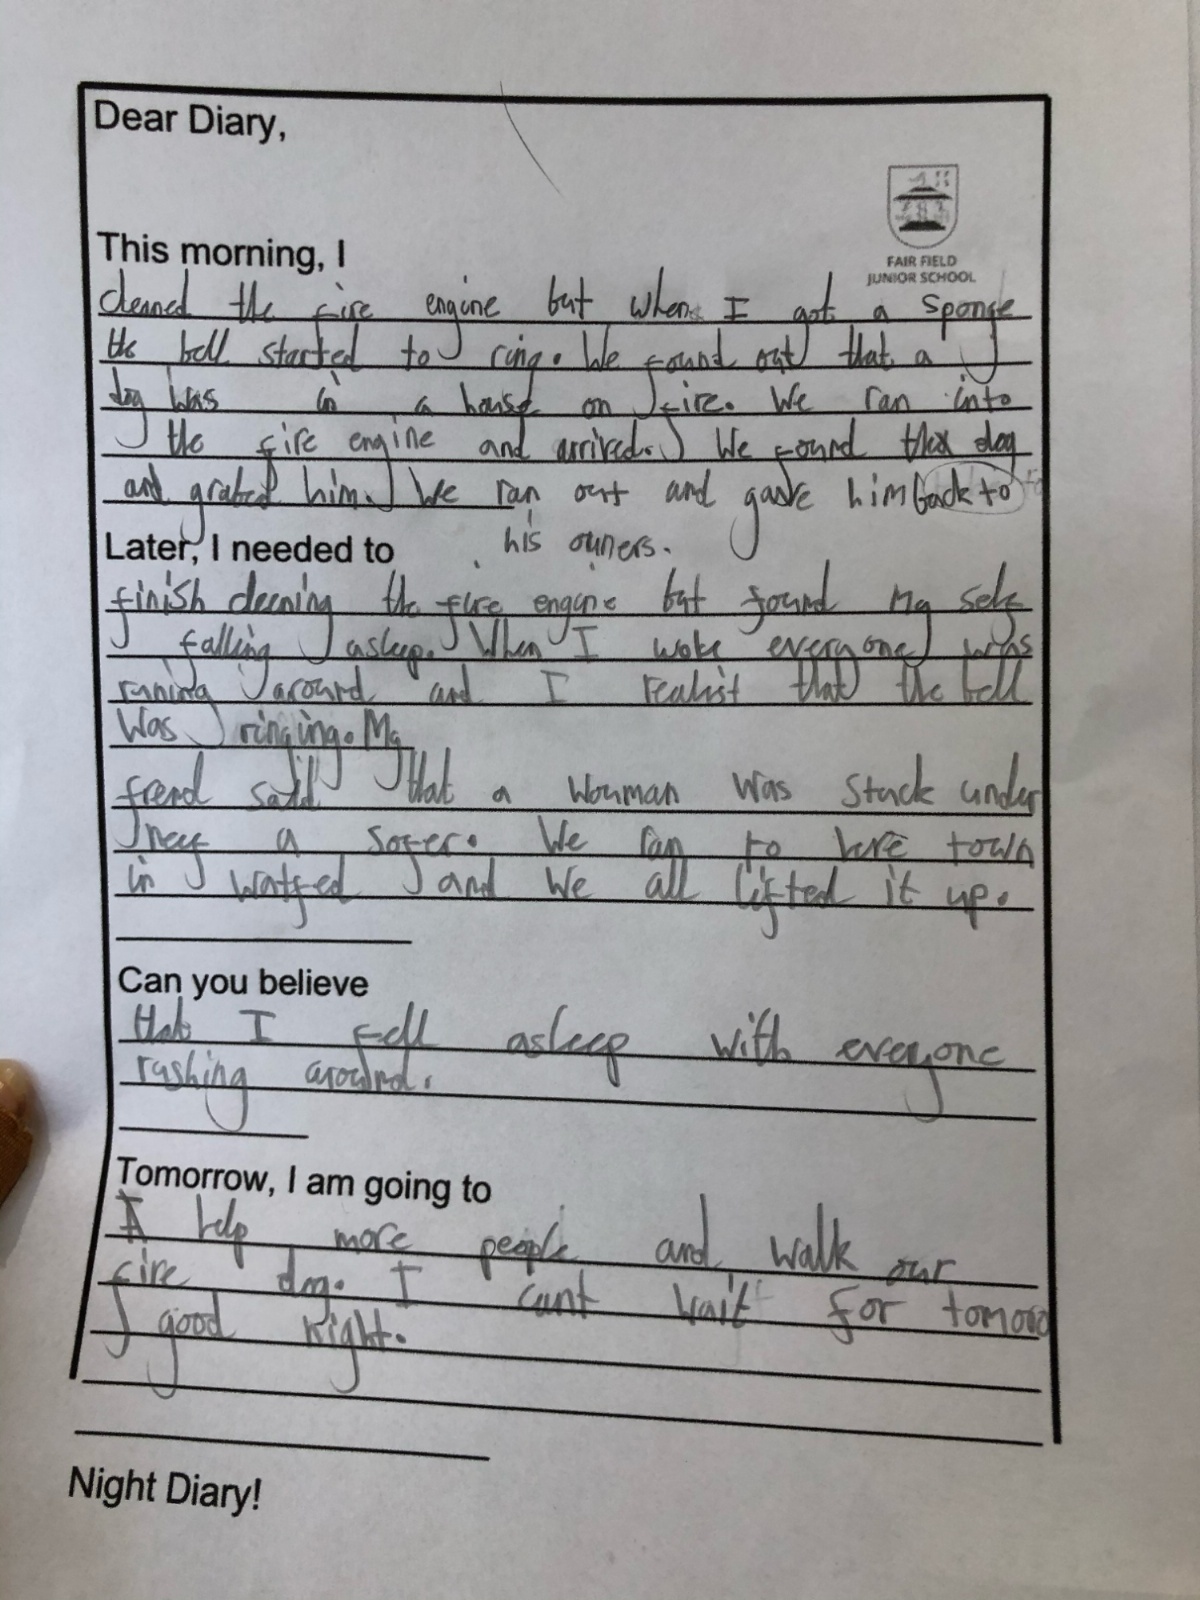 Dear Diary,
FAIR FIELD
JUNIOR SCHOOL
This morning, I
cleaned the fire engine but when I got a sponge
the bell started to ring. We found out that a
dog was in a house on fire. We ran into
the fire engine and arrived. We found the dog
and grabed him. We ran out and gave him back to
his owners.
Later, I needed to
finish cleening the fire engine but found my self
falling asleep. When I woke everyone was
runing around and I realist that the bell
was ringing. My
frend said that a wouman was stuck under
neef a sofer. We ran to here town
in watfred and we all lifted it up.
Can you believe
that I fell asleep with everyone
rushing around.
Tomorrow, I am going to
help more people and walk our
fire dog. I cant wait for tomoro
good night.
Night Diary!